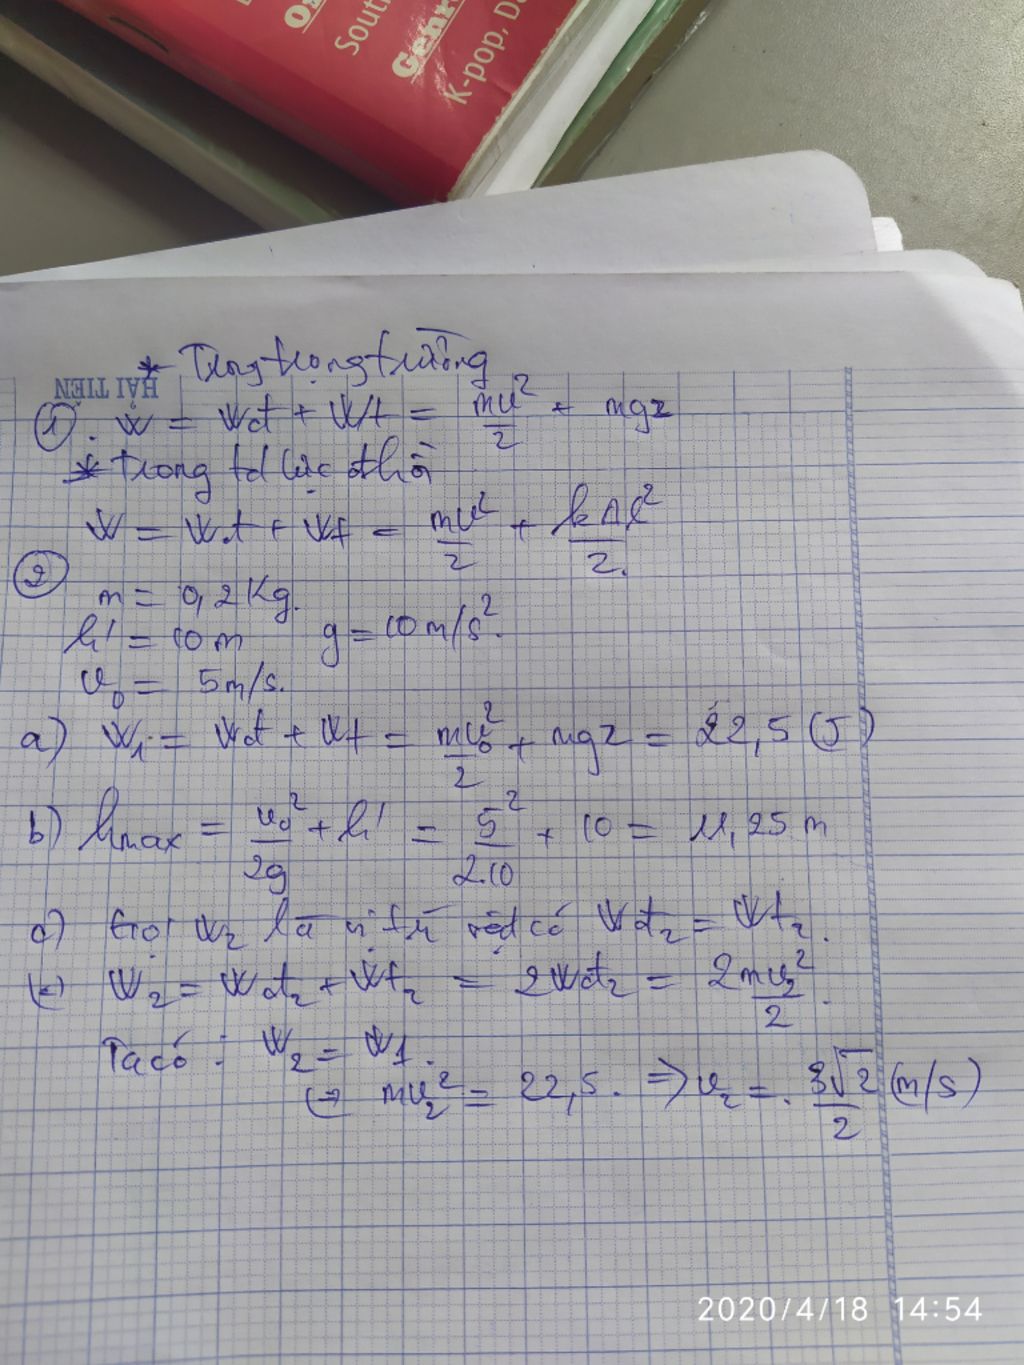 South
Genre
K-pop, D
HẢI TIẾN
* Trong trọng trường
① . W = Wđ + Wt = mv²/2 + mgz
* Trong td lực đhồi
W = Wđ + Wt = mv²/2 + kΔl²/2.
②
m = 0,2 Kg.
h' = 10 m g = 10 m/s².
v₀ = 5 m/s.
a) W₁ = Wđ + Wt = mv₀²/2 + mgz = 22,5 (J)
b) hmax = v₀²/2g + h' = 5²/2.10 + 10 = 11,25 m
c) Gọi W₂ là vị trí vật có Wđ₂ = Wt₂.
(c) W₂ = Wđ₂ + Wt₂ = 2Wđ₂ = 2mv₂²/2.
Ta có : W₂ = W₁.
⇔ mv₂² = 22,5. ⇒ v₂ = . 3√2/2 (m/s)
2020/4/18 14:54